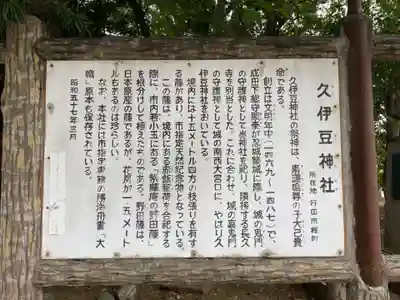 久伊豆神社
所在地 行田市桜町
久伊豆神社の祭神は、素盞嗚尊の子大己貴
命である。
創立は文明年中(一四六九〜一四八七)で、
成田下総守顕泰が忍城築城に際し、城の鬼門
の守護神として当神社を祀り、隣接する長久
寺を別当とした。これに合わせ、城の裏鬼門
の守護神として城の南西大宮口に、やはり久
伊豆神社をおいている。
境内には十五メートル四方の枝張りを有す
る藤があり、市指定天然記念物となっている。
この藤は、境内にある赤飯稲荷を合祀する
際に、市内若小玉にある「紫藤庵の野田藤」
を根分けして植えたものである。野田藤は、
日本原産の藤であるが、花房が一・五メート
ルもあるのは珍しい。
なお、本社には市指定
「大
織」原本も保存されている。
昭和五十七年三月